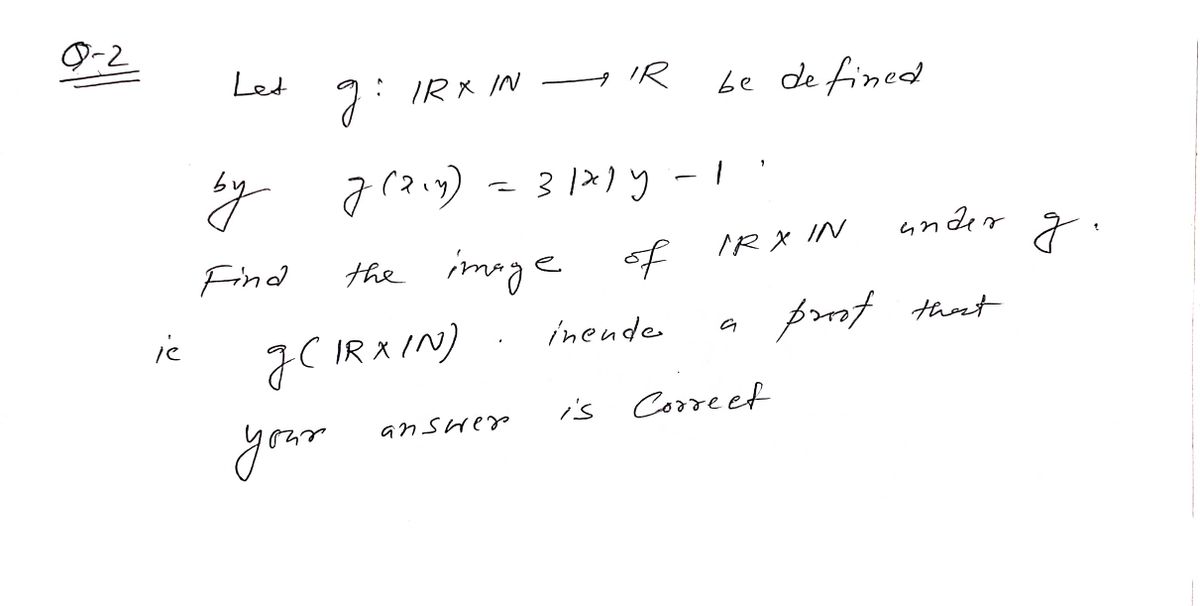 Q-2
Let g: IR X IN → IR be defined
by g(x,y) = 3|x|y - 1.
Find the image of IR X IN under g.
ie g(IR X IN). inende a proof that
your answer is Correct